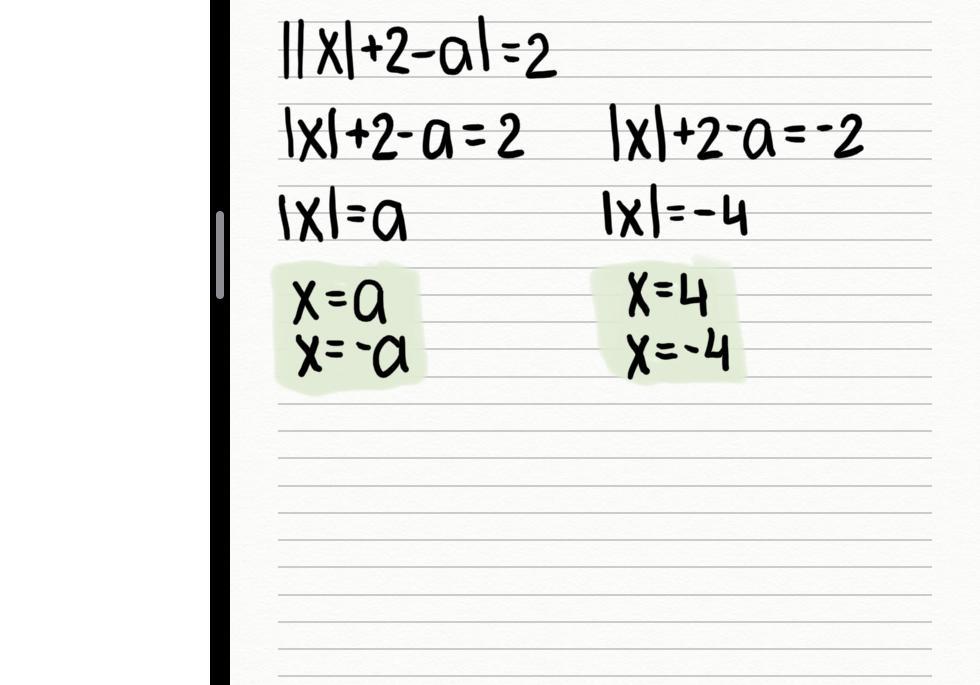 ||x|+2-a|=2
|x|+2-a=2 |x|+2-a=-2
|x|=a |x|=-4
x=a x=4
x=-a x=-4